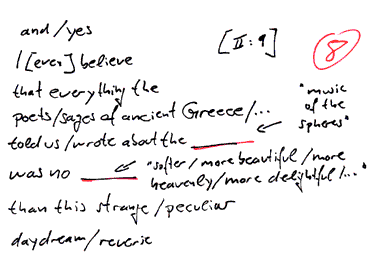 and/yes
[II:9]
8
I [even] believe
that everything the
poets/sages of ancient Greece/...
"music of the spheres"
told us/wrote about the ______
was no ______ "softer/more beautiful/more
heavenly/more delightful/..."
than this strange/peculiar
daydream/reverie